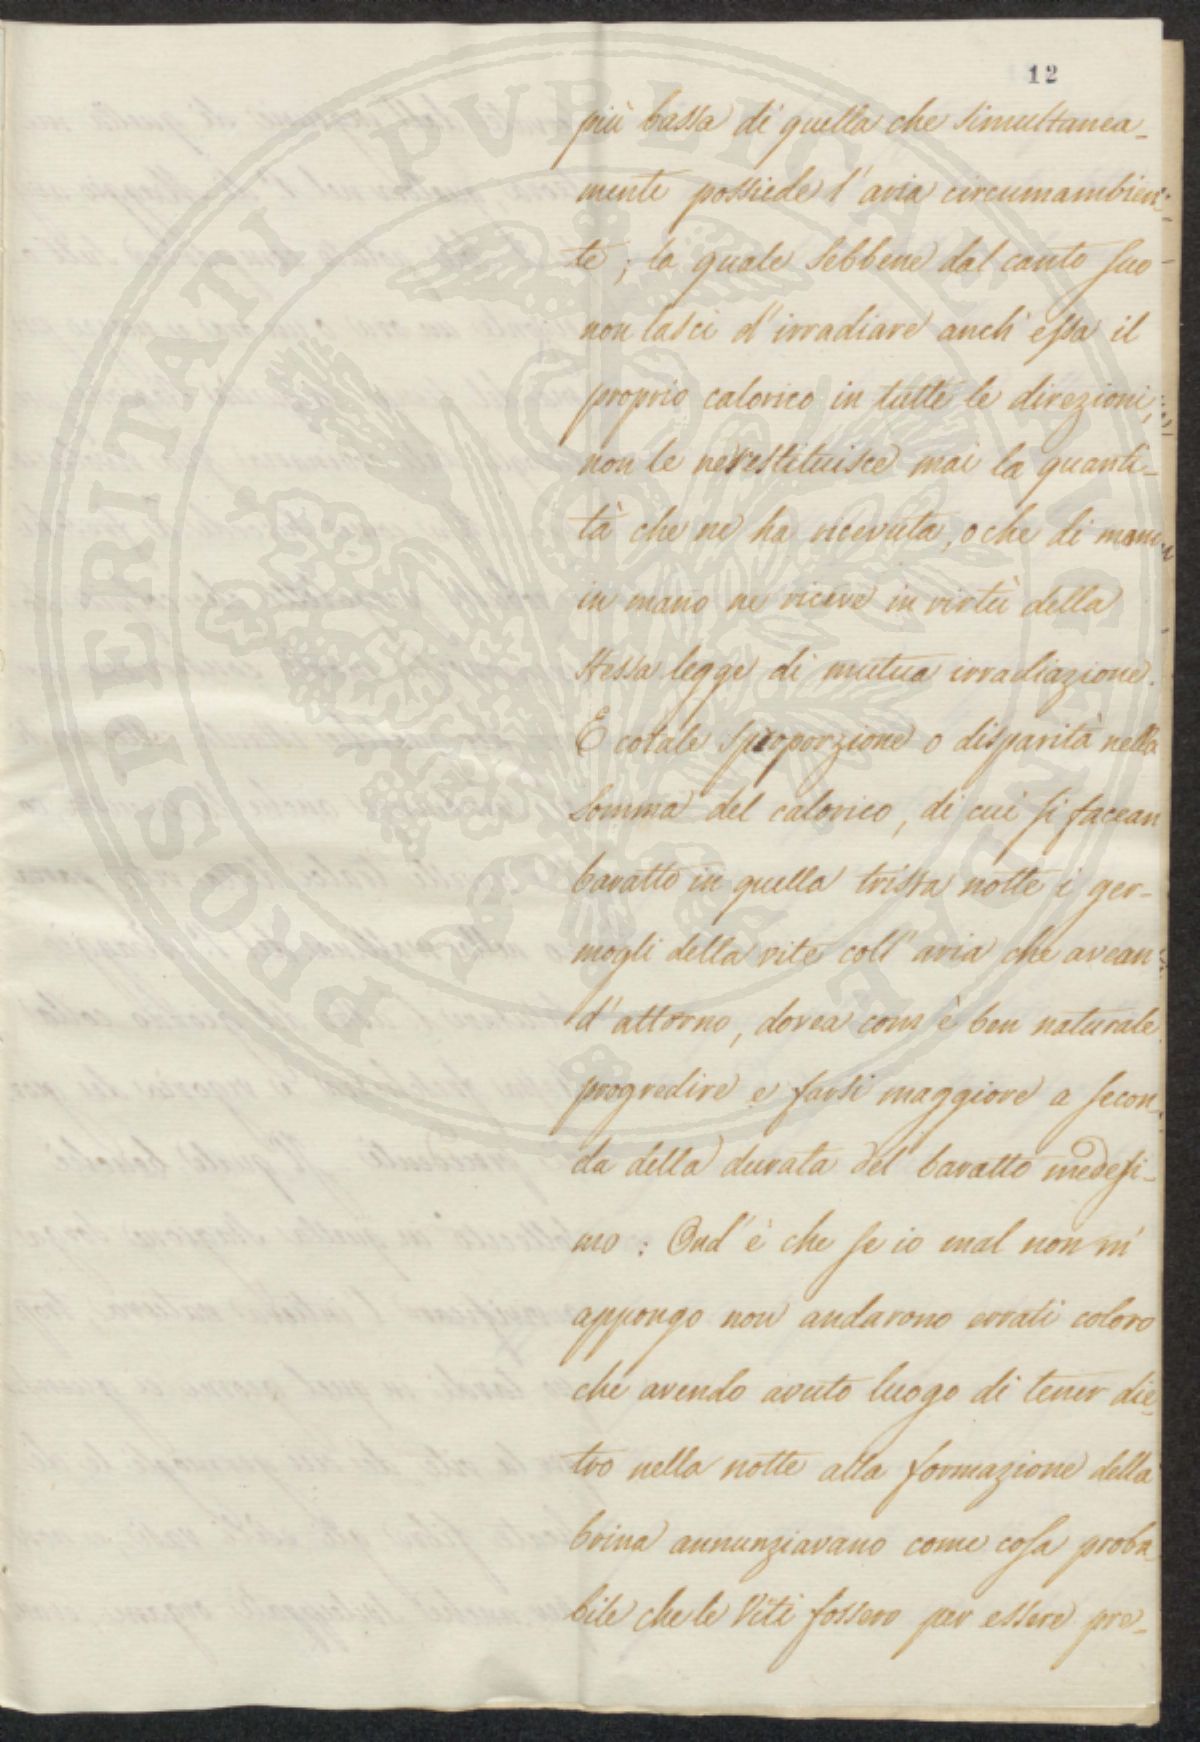 12
più bassa di quella che simultanea-
mente possiede l'aria circumambien-
te; la quale sebbene dal canto suo
non lasci d'irradiare anch'essa il
proprio calorico in tutte le direzioni,
non le ne restituisce mai la quanti-
tà che ne ha ricevuta, o che di mano
in mano ne riceve in virtù della
stessa legge di mutua irradiazione.
E cotale sproporzione o disparità nella
somma del calorico, di cui si facean
baratto in quella trista notte i ger-
mogli della vite coll'aria che avean
d'attorno, dovea com'è ben naturale
progredire e farsi maggiore a secon-
da della durata del baratto medesi-
mo: Ond'è che se io mal non m'
appongo non andarono errati coloro
che avendo avuto luogo di tener die-
tro nella notte alla formazione della
brina annunziavano come cosa proba
bile che le Viti fossero per essere pre-
PROSPERITATI PUBLICAE AUGENDAE